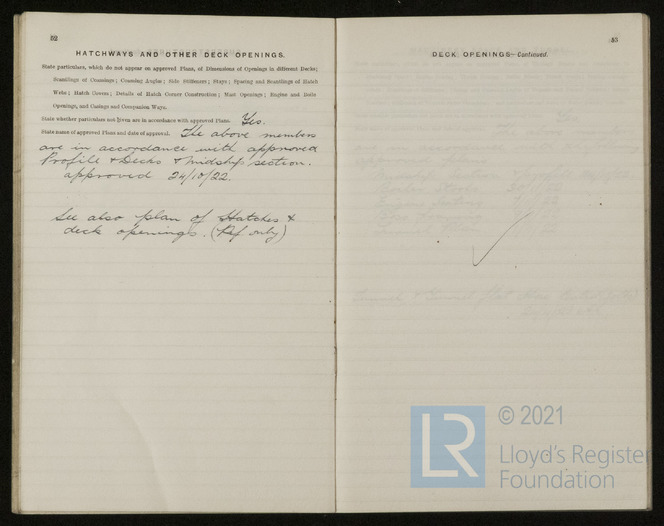 52
HATCHWAYS AND OTHER DECK OPENINGS.
State particulars, which do not appear on approved Plans, of Dimensions of Openings in different Decks;
Scantlings of Coamings; Coaming Angles; Side Stiffeners; Stays; Spacing and Scantlings of Hatch
Webs; Hatch Covers; Details of Hatch Corner Construction; Mast Openings; Engine and Boiler
Openings, and Casings and Companion Ways.
State whether particulars not given are in accordance with approved Plans. Yes.
State name of approved Plans and date of approval. The above members
are in accordance with approved
Profile & Decks & Midship section.
approved 24/10/22.
See also plan of Hatches &
deck openings. (Ref only)
53
DECK OPENINGS—Continued.
LR
© 2021
Lloyd's Register
Foundation